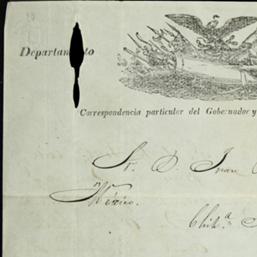 Departamento
Correspondencia particular del Gobernador y
Sr. D. Juan
México.
Chih.ª